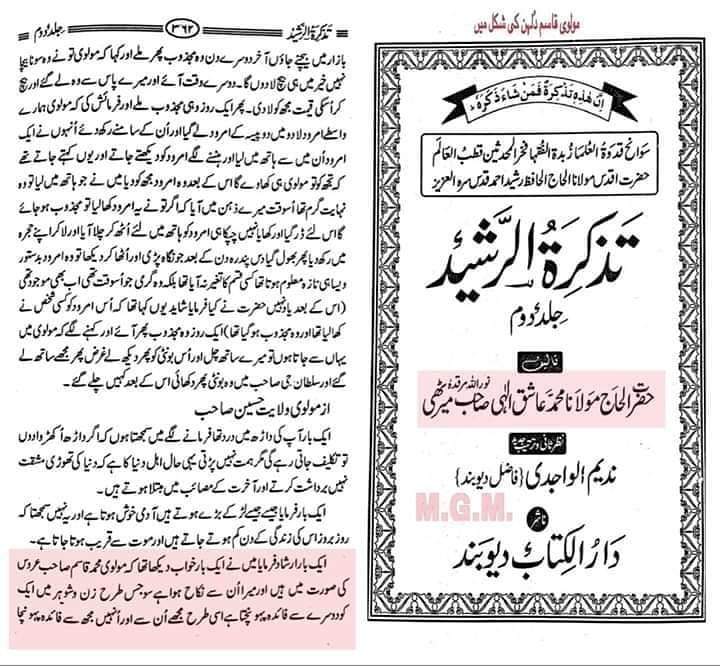 مولوی قاسم دلہن کی شکل میں
اِنَّ هٰذِهٖ تَذْكِرَةٌ فَمَنْ شَاءَ ذَكَرَهٗ
سوانح قدوۃ العلما زبدۃ الفقہا فخر المحدثین قطب العالم
حضرت اقدس مولانا الحاج الحافظ رشید احمد قدس سرہ العزیز
تذکرۃ الرشید
جلد دوم
تالیف
حضرت الحاج مولانا محمد عاشق الٰہی صاحب میرٹھی نور اللہ مرقدہٗ
نظر ثانی و ترتیب جدید
ندیم الواجدی {فاضل دیوبند}
M.G.M.
ناشر
دار الکتاب دیوبند
تذکرۃ الرشید ۳۶۲ جلد دوم
بازار میں بیچنے جاؤں آخر دوسرے دن وہ مجذوب پھر ملے اور کہا کہ مولوی تو نے وہ سونا بیچا
نہیں خیر میں ہی بیچ لادوں گا۔ دوسرے وقت آئے اور میرے پاس سے وہ لے گئے اور بیچ
کر اُسکی قیمت مجھ کو لادی۔ پھر ایک روز وہی مجذوب ملے اور فرمائش کی کہ مولوی ہمارے
واسطے امرود لادو میں دو پیسہ کے امرود لے گیا اور اُن کے سامنے رکھدئے اُنہوں نے ایک
امرود اُن میں سے ہاتھ میں لیا اور ہنسنے لگے امرود کو دیکھتے جاتے اور یوں کہتے جاتے تھے
کہ تجھ کو تو مولوی ہی کھاوے گا اس کے بعد وہ امرود مجھ کو دیا میں نے جو ہاتھ میں لیا تو وہ
نہایت گرم تھا اُسوقت میرے ذہن میں آیا کہ اگر تو نے یہ امرود کھا لیا تو مجذوب ہو جائے
گا اس لئے ڈر گیا اور کھایا نہیں چپکا ہی امرود کو ہاتھ میں لئے اُٹھ کر چلا آیا اور لا کر اپنے حجرہ
میں رکھدیا پھر بھول گیا دس پندرہ دن کے بعد جو نگاہ پڑی اور اُٹھا کر دیکھا تو وہ امرود بدستور
ویسا ہی تازہ معلوم ہوتا تھا کسی قسم کا تغیر نہ آیا تھا بلکہ وہ گرمی جو اُسوقت تھی اب بھی موجود تھی
(اس کے بعد یاد نہیں حضرت نے کیا فرمایا شاید یوں کہا تھا کہ اُس امرود کو کسی شخص نے
کھا لیا تھا اور وہ مجذوب ہو گیا تھا) ایک روز وہ مجذوب پھر آئے اور کہنے لگے کہ مولوی میں
یہاں سے جاتا ہوں تو میرے ساتھ چل اور اُس بوٹی کو پھر دیکھ لے غرض پھر مجھے ساتھ لے
گئے اور سلطان جی صاحب میں وہ بوٹی پھر دکھائی اس کے بعد کہیں چلے گئے۔
از مولوی ولایت حسین صاحب
ایک بار آپ کی داڑھ میں درد تھا فرمانے لگے میں سمجھتا ہوں کہ اگر داڑھ اُکھڑوادوں
تو تکلیف جاتی رہے گی مگر ہمت نہیں پڑتی یہی حال اہل دنیا کا ہے کہ دنیا کی تھوڑی مشقت
نہیں برداشت کرتے اور آخرت کے مصائب میں مبتلا ہوتے ہیں۔
ایک بار فرمایا جیسے جیسے لڑکے بڑے ہوتے ہیں آدمی خوش ہوتا ہے اور یہ نہیں سمجھتا کہ
روز بروز اس کی زندگی کے دن کم ہوتے جاتے ہیں اور موت سے قریب ہوتا جاتا ہے۔
ایک بار ارشاد فرمایا میں نے ایک بار خواب دیکھا تھا کہ مولوی محمد قاسم صاحب عروس
کی صورت میں ہیں اور میرا اُن سے نکاح ہوا ہے سو جس طرح زن و شوہر میں ایک
کو دوسرے سے فائدہ پہونچتا ہے اسی طرح مجھے اُن سے اور اُنہیں مجھ سے فائدہ پہونچا